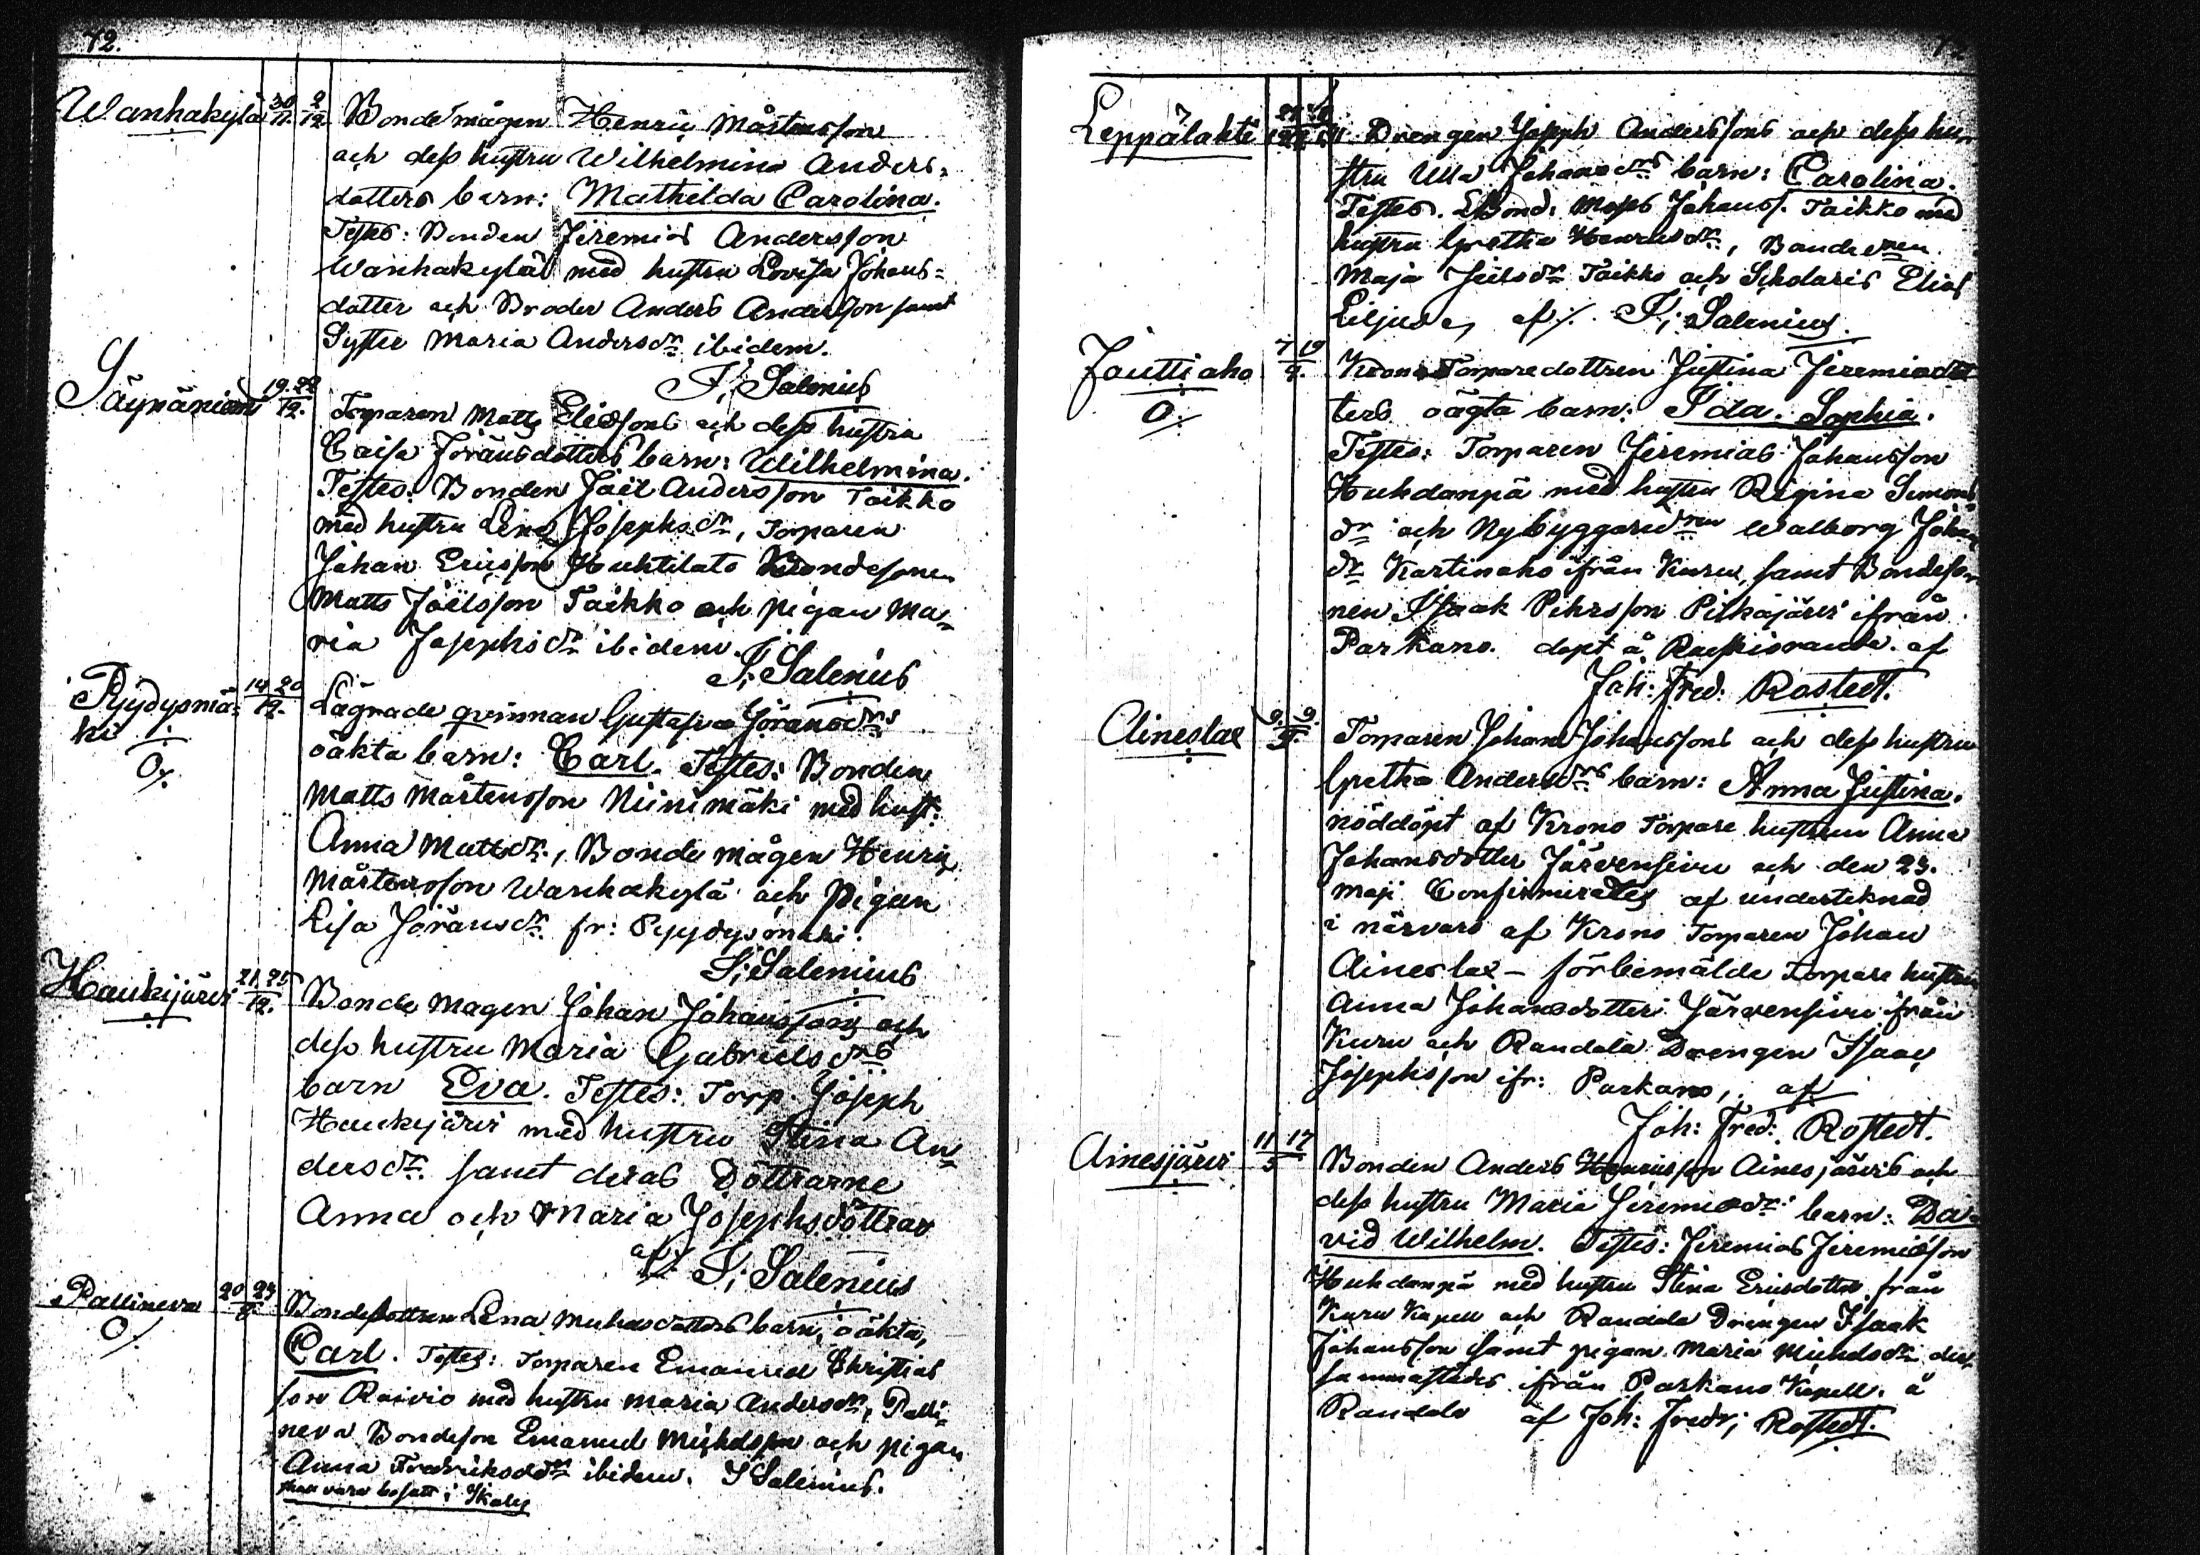 72.
Wanhakylä 30/11. 2/12 Bonde mågen Henric Mårtensson
och dess hustru Wilhelmina Anders-
dotters barn: Mathilda Carolina.
Testes: Bonden Jeremias Andersson
Wanhakylä med hustru Lovisa Johans-
dotter och Broder Anders Andersson samt
Syster Maria Andersdr ibidem.
S; Salenius
19. 22/12. Torparen Matts Eliessons och dess hustru
Caisa Jöransdotters barn: Wilhelmina.
Testes: Bonden Joël Andersson Taikko
med hustru Lena Josephsdr, Torparen
Johan Ericsson Huhtilato Bondesonen
Matts Joëlsson Taikko och pigan Ma-
ria Josephsdr ibidem.
S; Salenius
Pyydysmä-
ki 14 20/12. Lägrade qvinnan Gustafva Jöransdrs
O/. oäkta barn: Carl. Testes: Bonden
Matts Mårtensson Niinimäki med hust:
Anna Mattsdr., Bonde mågen Henric
Mårtensson Wanhakylä och pigan
Lisa Jöransdr fr: Pyydysmäki.
S; Salenius
Haukijärvi 21. 25/12. Bonde magen Johan Johanssons och
dess hustru Maria Gabrielsdrs
barn Eva. Testes: Torp. Joseph
Haukijärvi med hustru Stina An-
dersdr. samt deras Döttrarne
Anna och Maria Josephsdöttrar
af S; Salenius
Pallineva 20 23 Bondedottren Lena barn, oäkta,
O/. Carl. Testes: Torparen Emanuel Christias
son Raivio med hustru Maria Andersdr, Palli-
neva Bondeson Emanuel Michelsson och pigan
Anna Fredriksdr ibidem. S Salenius.
vara bosatt i
Leppälahti Drengen Joseph Anderssons och dess hu-
stru Ulla Johansdrs barn: Carolina.
Testes. Bond: Johanss. Taikko med
hustru Gretha Henricsdr,
Maja Taikko och Scholaris Elias
af/. S; Salenius.
Jouttiaho 7 19 Krono Torparedottren Justina Jeremiedot
O/. ters oägta barn: Ida Sophia.
Testes: Torparen Jeremias Johansson
Huhdanpä med hustru Regina Simons
dr och Nybyggare Walborg Johans
dr Kortinaho ifrån Kuru, samt Bondeso-
nen Isaak Pehrsson ifrån
Parkano. döpt å af
Joh: Fred: Rostedt.
Aineslax 9. 9. Torparen Johan Johanssons och dess hustru
Gretha Andersdrs barn: Anna Justina.
nöddöpt af Krono Torpare hustrun Anna
Johansdotter Järvensivu och den 23.
Maji Confirmerades af undertecknad
i närvaro af Krono Torparen Johan
Aineslax – förbemälde Torpare hustru
Anna Johansdotter Järvensivu ifrån
Kuru och Randala Drengen Isaac
Josephsson ifr: Parkano, af
Joh: Fred: Rostedt.
Ainesjärvi 11 17/5 Bonden Anders Henricsson Ainesjärvis och
dess hustru Maria Jeremiedr barn: Da-
vid Wilhelm. Testes: Jeremias Jeremiæson
Huhdanpä med hustru Stina Ericsdotter från
Kuru Kapell och Randala Drengen Isaak
Johansson samt pigan Maria Michelsdr der
sammastädes ifrån Parkano Kapell. å
Randala af Joh: Fredr; Rostedt.